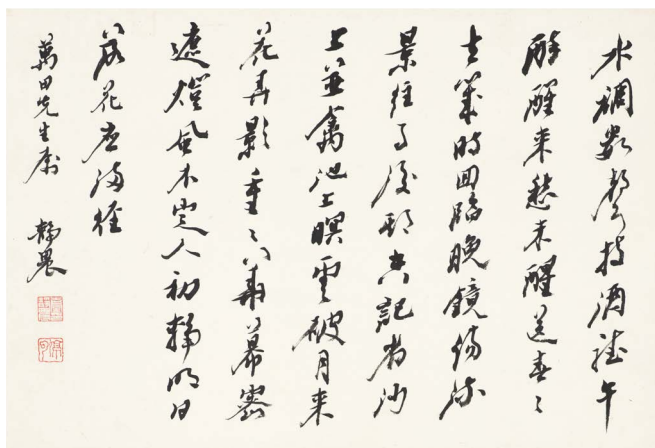 水調數聲持酒聽午
醉醒来愁未醒送春〻
去幾時回臨晚鏡傷流
景往事後期空記省沙
上並禽池上暝雲破月来
花弄影重〻簾幕密
遮燈風不定人初靜明日
落花應滿徑
萬田先生屬 靜農